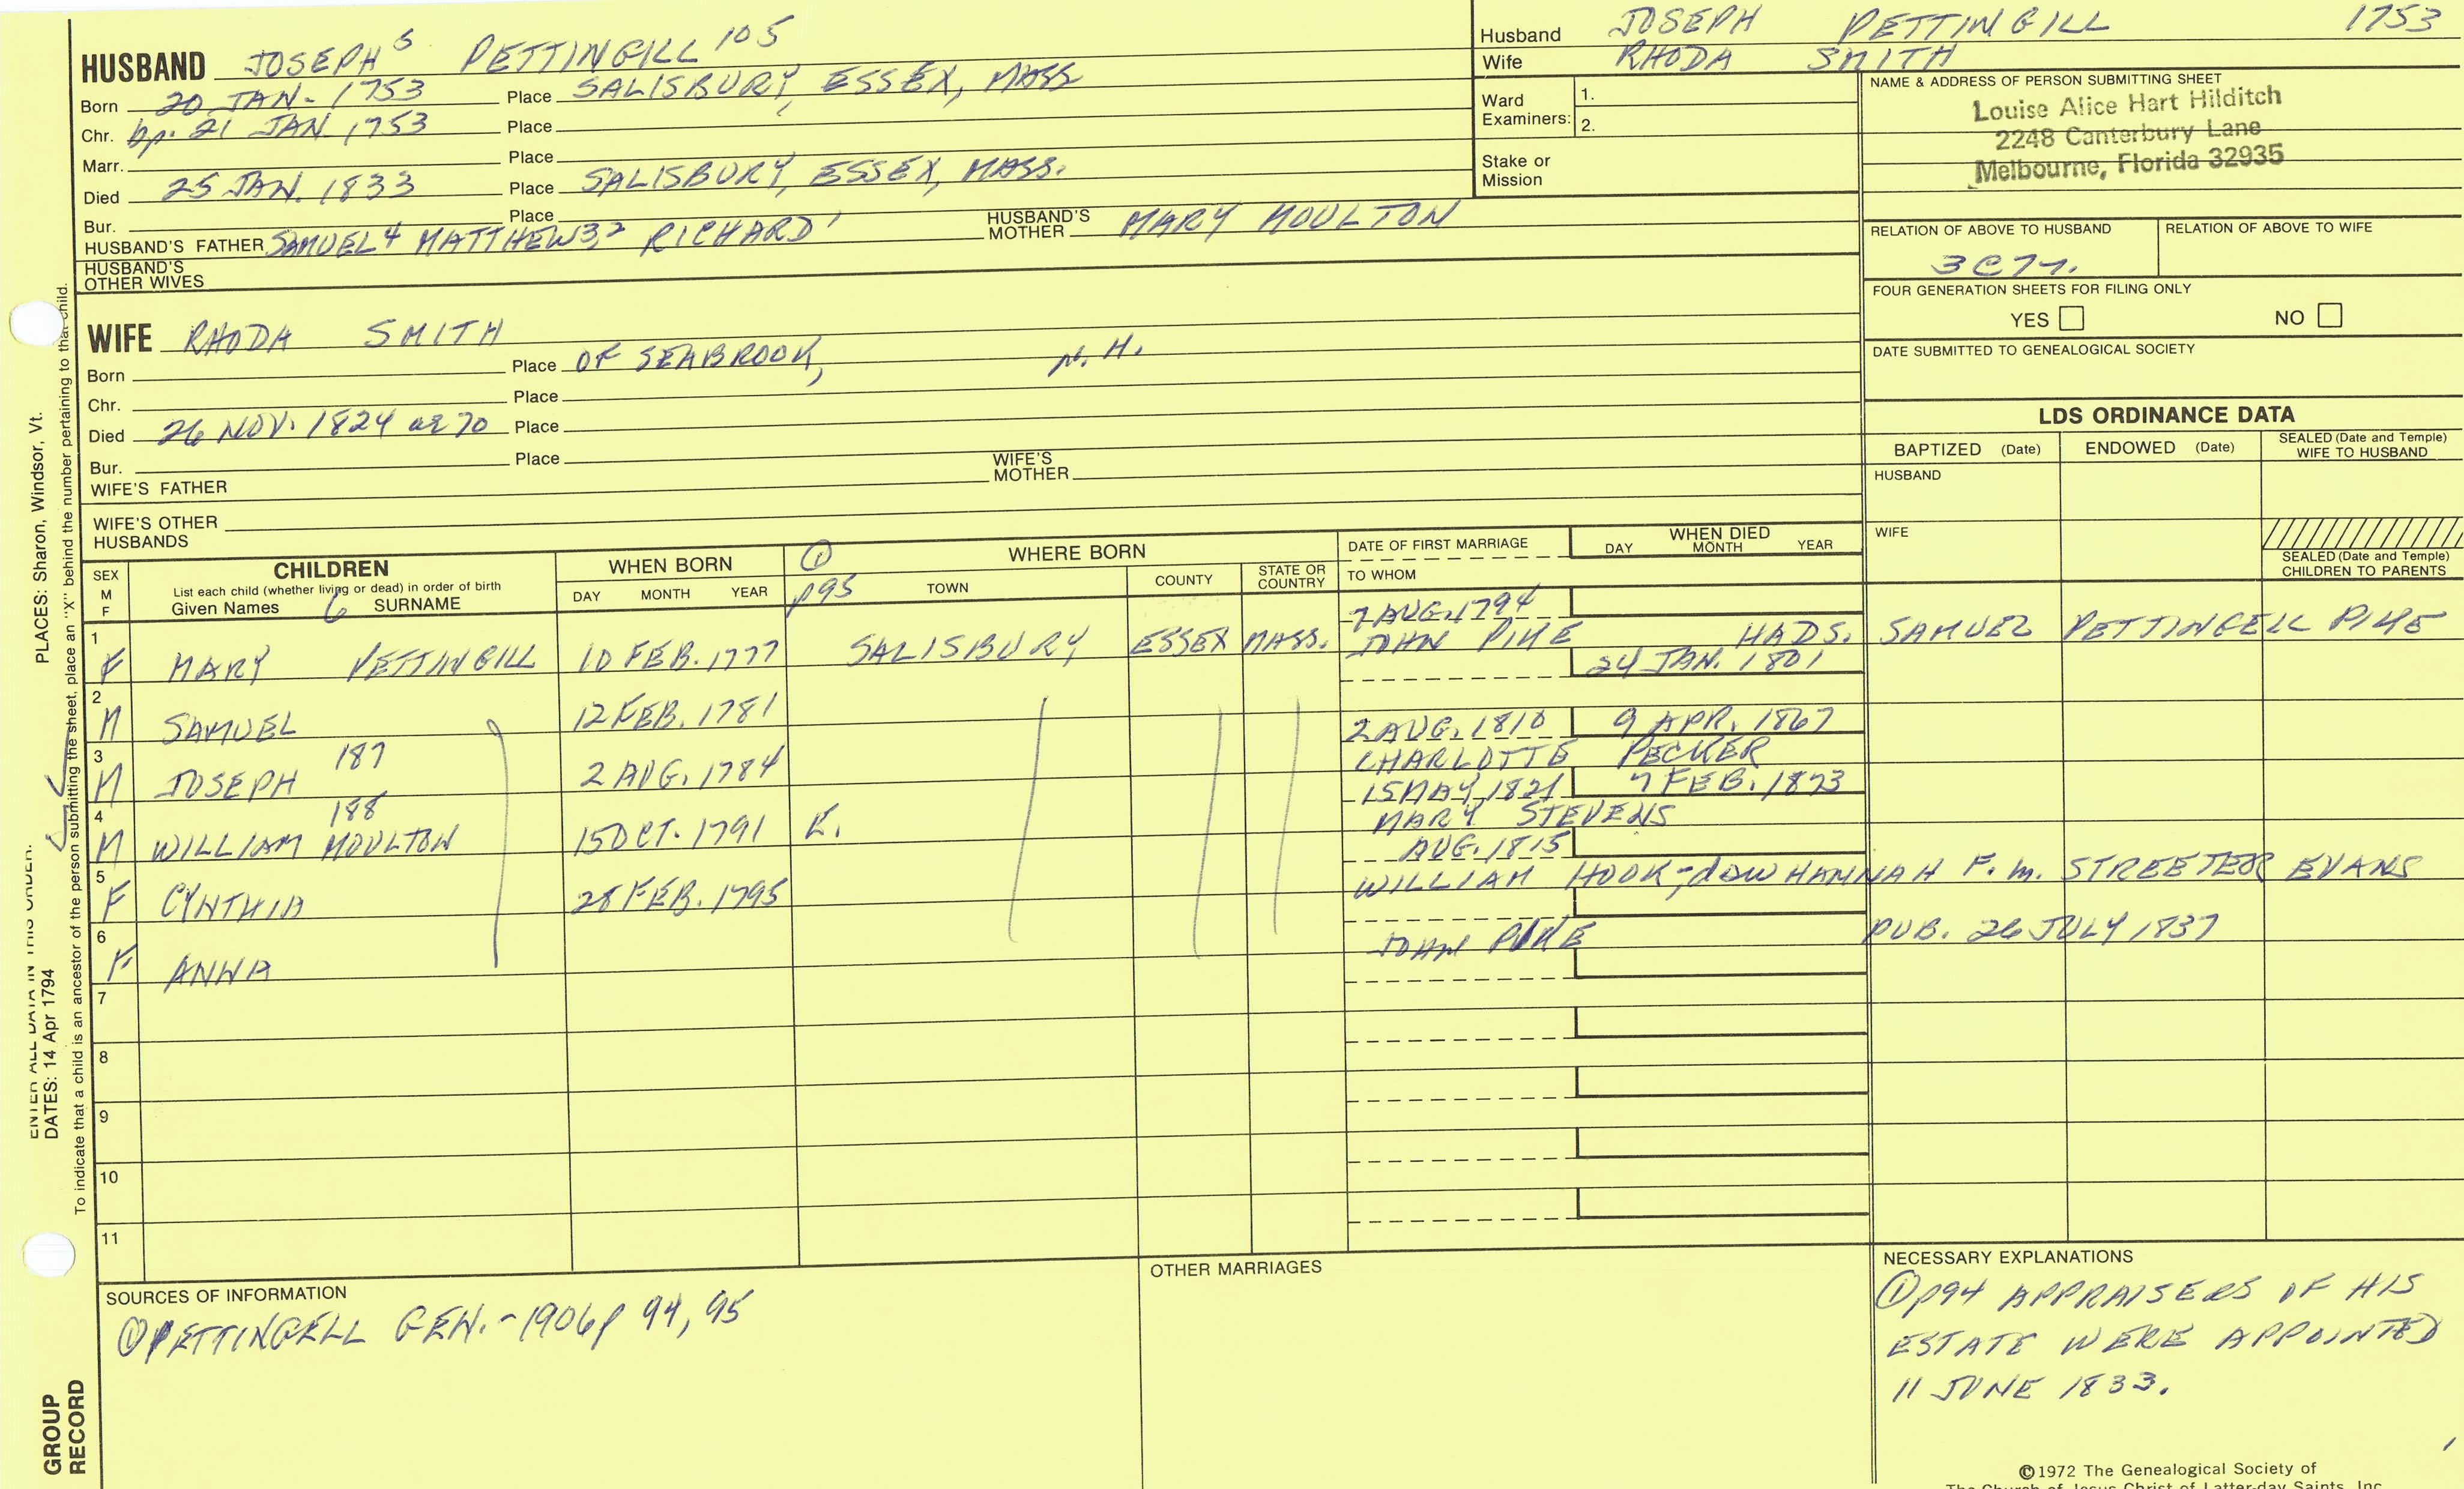 HUSBAND JOSEPH 5 PETTINGILL 105
Born 20 JAN. 1753 Place SALISBURY, ESSEX, MASS
Chr. bp. 21 JAN 1753 Place
Marr. Place
Died 25 JAN. 1833 Place SALISBURY, ESSEX, MASS.
Bur. Place
HUSBAND'S FATHER SAMUEL 4 MATTHEW 3,2 RICHARD 1 HUSBAND'S MOTHER MARY MOULTON
HUSBAND'S OTHER WIVES
Husband JOSEPH PETTINGILL 1753
Wife RHODA SMITH
Ward Examiners: 1.
2.
Stake or Mission
NAME & ADDRESS OF PERSON SUBMITTING SHEET
Louise Alice Hart Hilditch
2248 Canterbury Lane
Melbourne, Florida 32935
RELATION OF ABOVE TO HUSBAND RELATION OF ABOVE TO WIFE
3C7r.
FOUR GENERATION SHEETS FOR FILING ONLY
YES NO
DATE SUBMITTED TO GENEALOGICAL SOCIETY
WIFE RHODA SMITH
Born Place OF SEABROOK, N. H.
Chr. Place
Died 26 NOV. 1824 ae 70 Place
Bur. Place
WIFE'S FATHER WIFE'S MOTHER
WIFE'S OTHER HUSBANDS
LDS ORDINANCE DATA
BAPTIZED (Date) ENDOWED (Date) SEALED (Date and Temple) WIFE TO HUSBAND
HUSBAND
WIFE
SEALED (Date and Temple) CHILDREN TO PARENTS
SEX M F
CHILDREN
List each child (whether living or dead) in order of birth
Given Names 6 SURNAME
WHEN BORN
DAY MONTH YEAR
① p95
WHERE BORN
TOWN COUNTY STATE OR COUNTRY
DATE OF FIRST MARRIAGE
TO WHOM
WHEN DIED
DAY MONTH YEAR
7 AUG. 1794
1 F MARY PETTINGILL 10 FEB. 1777 SALISBURY ESSEX MASS. JOHN PIKE HADS. SAMUEL PETTINGELL PIKE
24 JAN. 1801
2 M SAMUEL 12 FEB. 1781
2 AUG. 1810 9 APR. 1867
3 M JOSEPH 187 2 AUG. 1784 CHARLOTTE PECKER
15 MAY 1821 7 FEB. 1873
4 M WILLIAM MOULTON 188 15 OCT. 1791 K. MARY STEVENS
AUG. 1815
5 F CYNTHIA 28 FEB. 1795 WILLIAM HOOK; daw HANNAH F. M. STREETER EVANS
6 F ANNA JOHN PIKE PUB. 26 JULY 1837
7
8
9
10
11
SOURCES OF INFORMATION
① PETTINGELL GEN. - 1906 p 94, 95
OTHER MARRIAGES
NECESSARY EXPLANATIONS
① p94 APPRAISERS OF HIS
ESTATE WERE APPOINTED
11 JUNE 1833.
©1972 The Genealogical Society of
The Church of Jesus Christ of Latter-day Saints, Inc.
ENTER ALL DATA IN THIS ORDER:
DATES: 14 Apr 1794 PLACES: Sharon, Windsor, Vt.
To indicate that a child is an ancestor of the person submitting the sheet, place an "X" behind the number pertaining to that child.
GROUP
RECORD